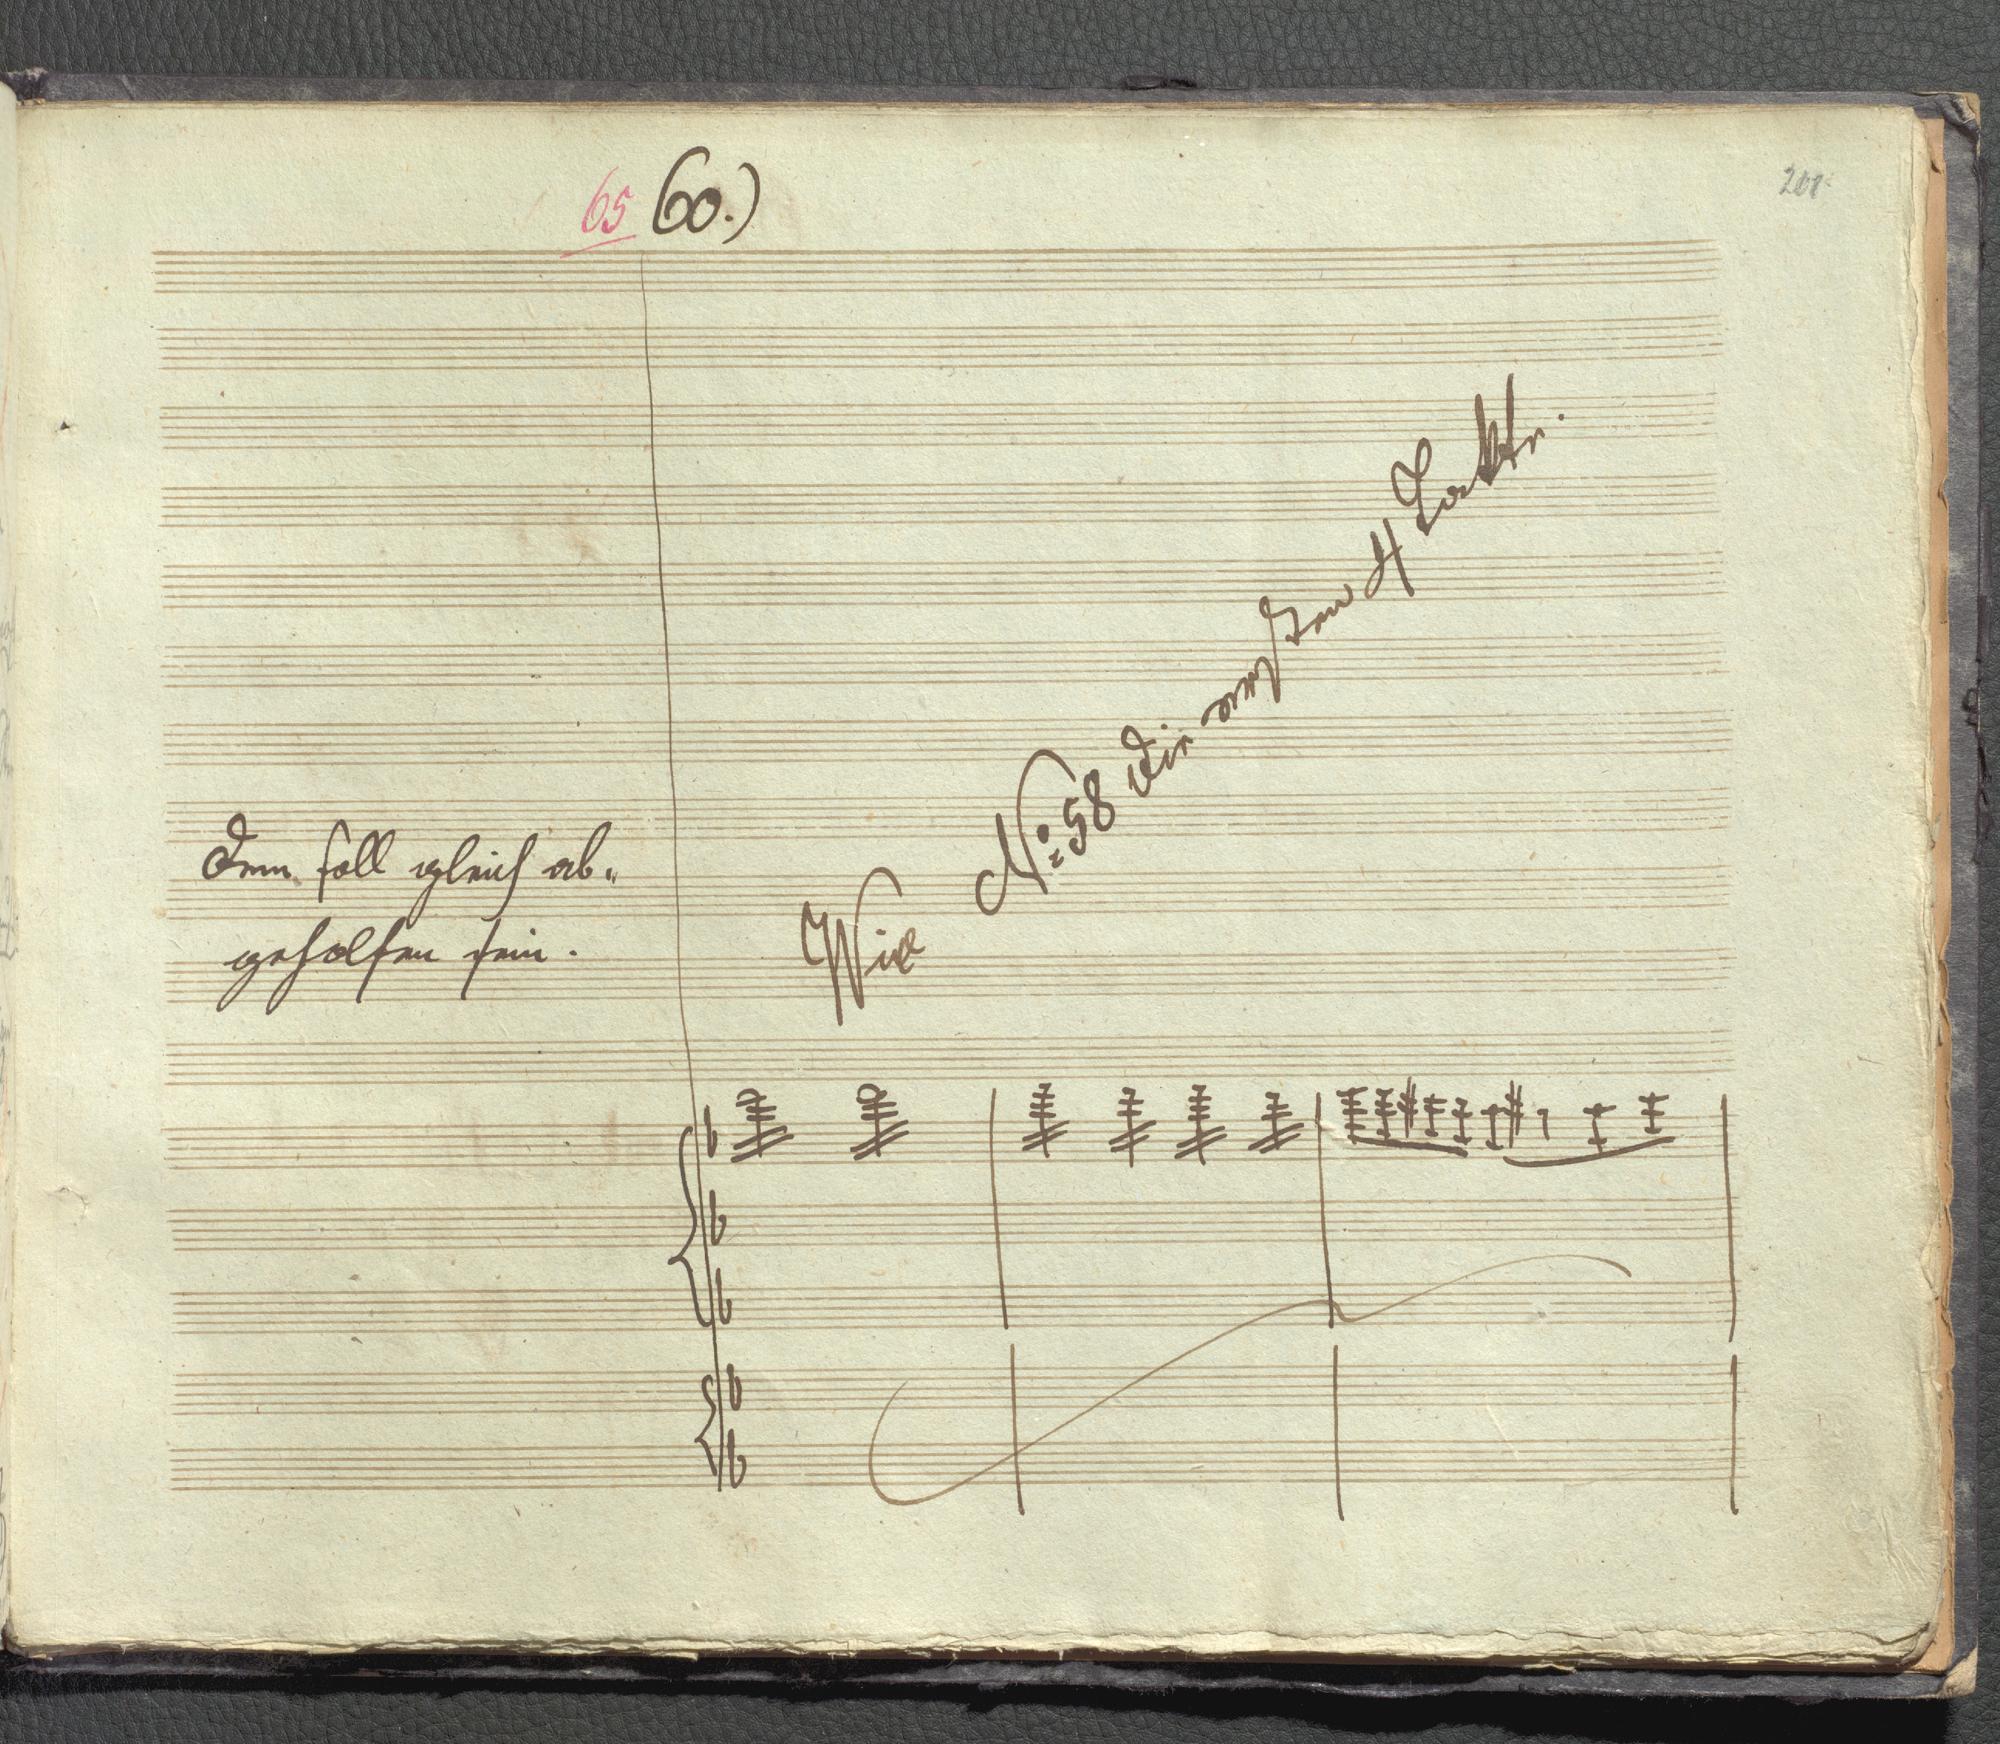 65 60.)
201
Wie No: 58 die ersten 4 Takte.
Dem soll gleich ab„
geholfen sein.